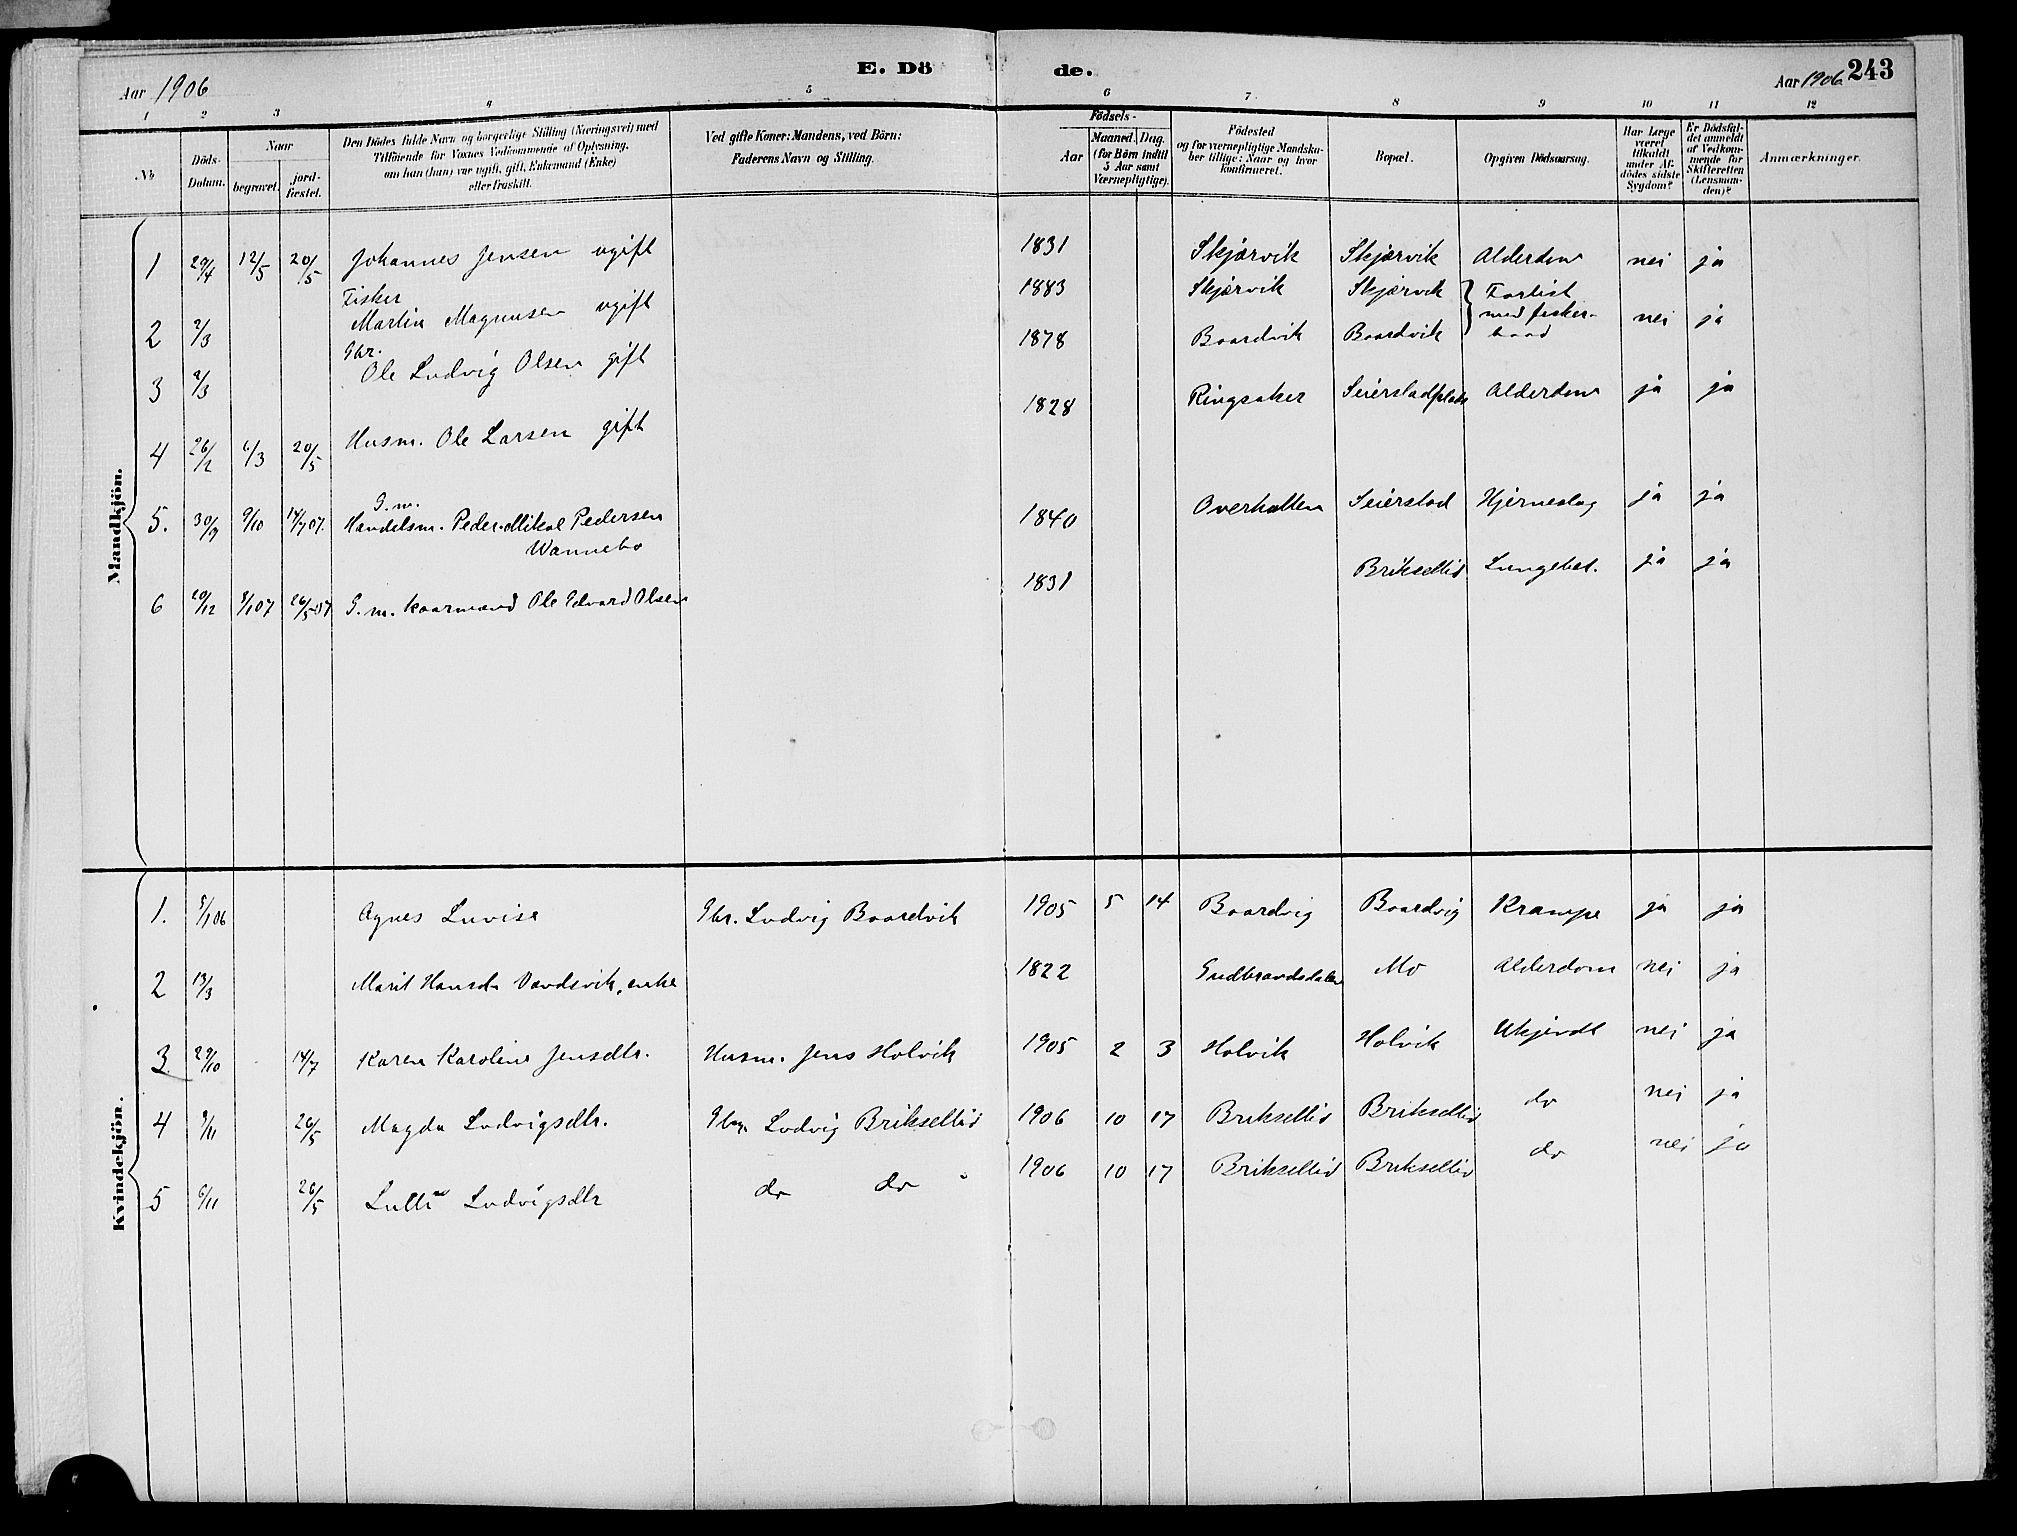 Aar 1906
E. Dö
de.
Aar 1906
243
1 2 3 4 5 6 7 8 9 10 11 12
№
Döds-
Datum.
Naar
begravet.
jord-
fæstet.
Den Dödes fulde Navn og borgerlige Stilling (Næringsvei) med
Tilföiende for Voxnes Vedkommende af Oplysning,
om han (hun) var ugift, gift, Enkemand (Enke)
eller fraskilt.
Ved gifte Koner: Mandens, ved Börn:
Faderens Navn og Stilling.
Födsels-
Aar
Maaned. Dag.
(for Börn indtil
5 Aar samt
Værnepligtige).
Födested
og for værnepligtige Mandska-
ber tillige: Naar og hvor
konfirmeret.
Bopæl.
Opgiven Dödsaarsag.
Har Læge
været
tilkaldt
under Af-
dödes sidste
Sygdom?
Er Dödsfal-
det anmeldt
af Vedkom-
mende for
Skifteretten
(Lensman-
den)?
Anmærkninger.
Mandkjön.
1 29/4 12/5 20/5 Johannes Jensen ugift 1831 Skjærvik Skjærvik Alderdom nei ja
Fisker
2 2/3 Martin Magnusen ugift 1883 Skjærvik Skjærvik Forlist
med fisker-
baad nei ja
Gbr.
3 2/3 Ole Ludvig Olsen gift 1878 Baardvik Baardvik
4 26/2 6/3 20/5 Husm. Ole Larsen gift 1828 Ringsaker Seierstadplads Alderdom ja ja
G. m.
5. 30/9 9/10 14/7 07. Handelsm. Peder Mikal Pedersen 1840 Overhallen Seierstad Hjerneslag ja ja
Wannebo
6 20/12 8/1 07 26/5 07 G. m. kaarmand Ole Edvard Olsen 1831 Briksellid Lungebet. ja ja
Kvindekjön.
1. 5/1 06 Agnes Luvise Gbr. Ludvig Baardvik 1905 5 14 Baardvig Baardvig Krampe ja ja
2 13/3 Marit Hansdr. Vandsvik, enke 1822 Gudbrandsdalen Mo Alderdom nei ja
3. 29/10 14/7 Karen Karoline Jensdtr. Husm. Jens Holvik 1905 2 3 Holvik Holvik Ukjendt nei ja
4 9/11 26/5 Magda Ludvigsdtr. Gbr. Ludvig Briksellid 1906 10 17 Briksellid Briksellid do nei ja
5 6/11 26/5 Ludvigsdtr do do 1906 10 17 Briksellid Briksellid do nei ja